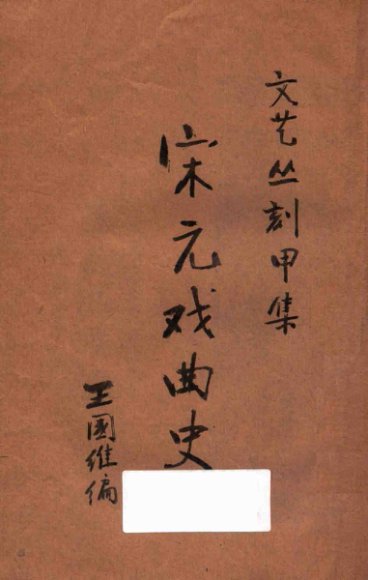 文艺丛刻甲集
宋元戏曲史
王國维编